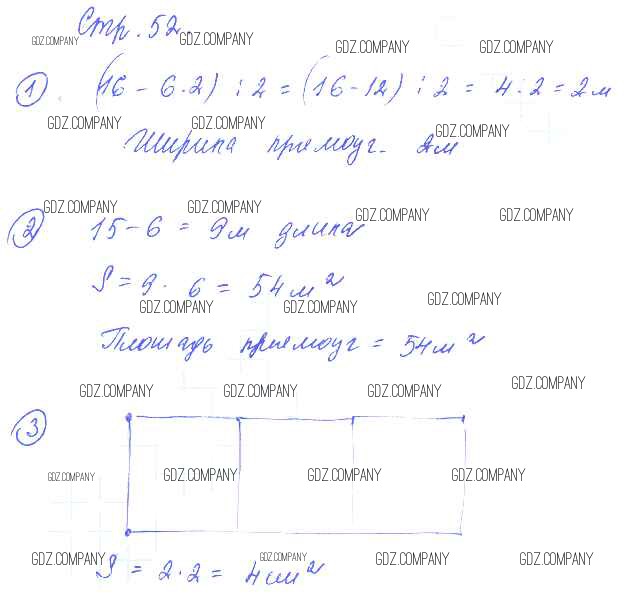 Стр. 52.
GDZ.COMPANY GDZ.COMPANY GDZ.COMPANY GDZ.COMPANY
1 (16 - 6·2) : 2 = (16 - 12) : 2 = 4 : 2 = 2 м
GDZ.COMPANY GDZ.COMPANY GDZ.COMPANY
Ширина прямоуг. 2м
GDZ.COMPANY GDZ.COMPANY GDZ.COMPANY GDZ.COMPANY
2 15 - 6 = 9 м длина
S = 9 · 6 = 54 м²
GDZ.COMPANY GDZ.COMPANY GDZ.COMPANY
Площадь прямоуг = 54 м²
GDZ.COMPANY GDZ.COMPANY GDZ.COMPANY GDZ.COMPANY
3
GDZ.COMPANY GDZ.COMPANY GDZ.COMPANY GDZ.COMPANY
GDZ.COMPANY GDZ.COMPANY GDZ.COMPANY GDZ.COMPANY
S = 2·2 = 4 см²